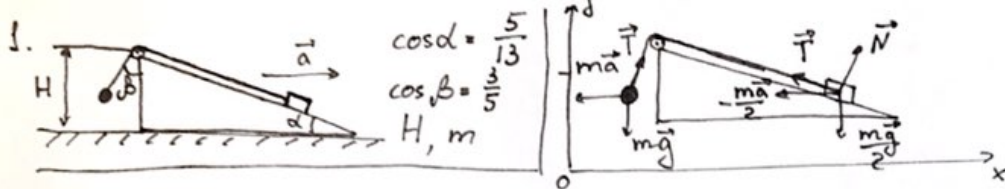 1.
H
β
a⃗
α
cosα = 5/13
cosβ = 3/5
H, m
y
T⃗
ma⃗
mg⃗
T⃗
N⃗
-ma⃗/2
mg⃗/2
O
x